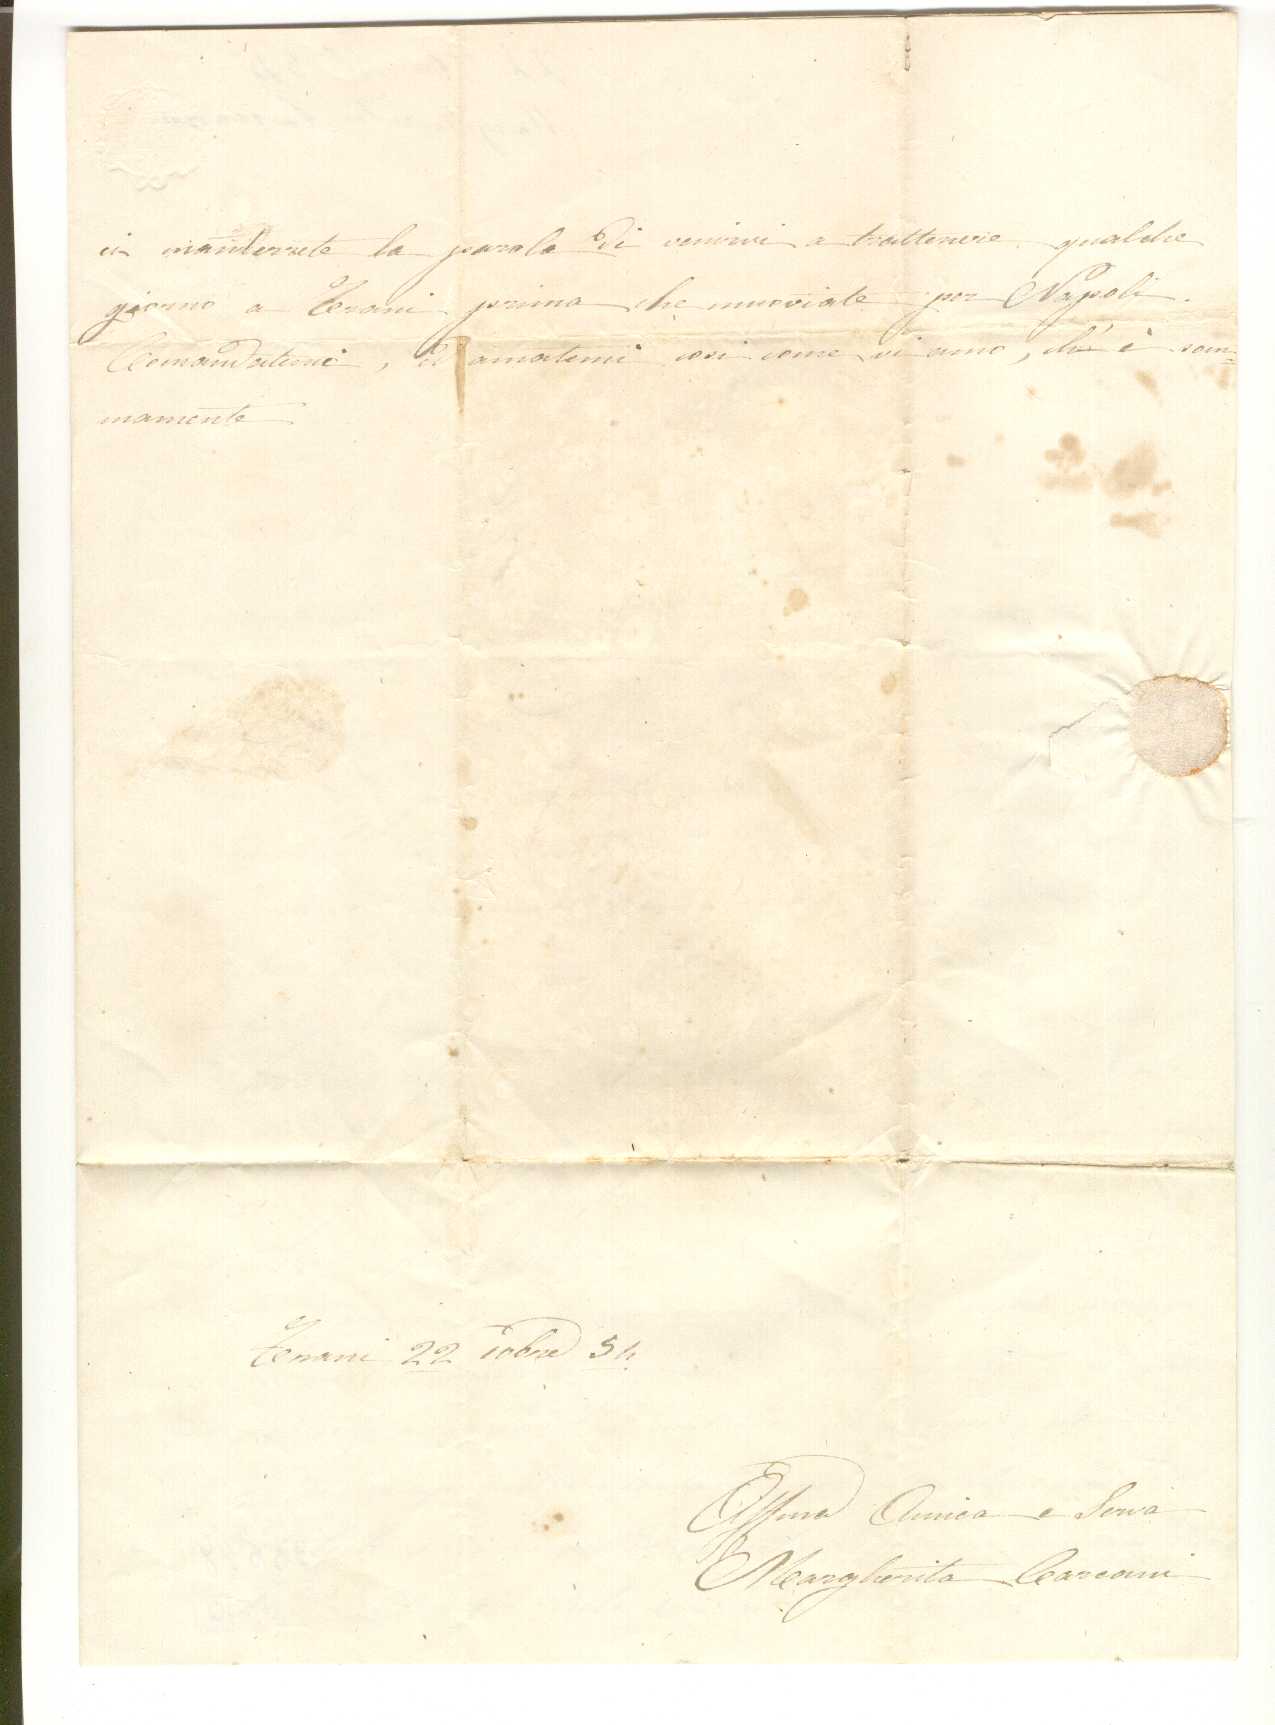 ci manterrete la parola di venirvi a trattenere qualche
giorno a Trani prima che muoviate per Napoli.
Comandatemi, ed amatemi così come vi amo, ch'è som=
mamente
Trani 22 8bre 54
Affma Amica e Serva
Margherita Carcani